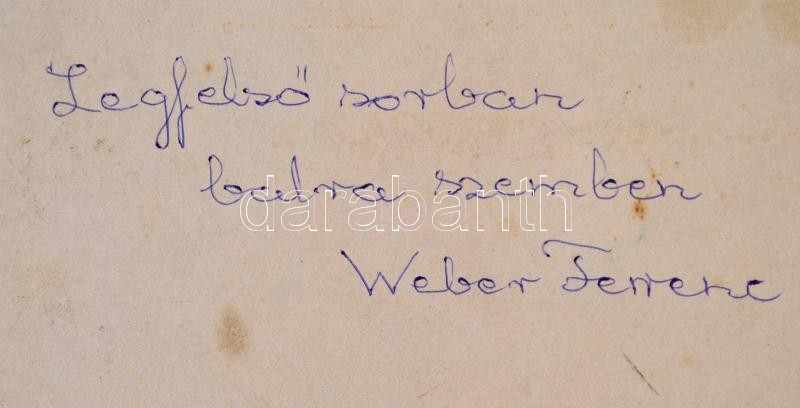 Legfelső sorban
balra szemben
darabanth
Weber Ferenc